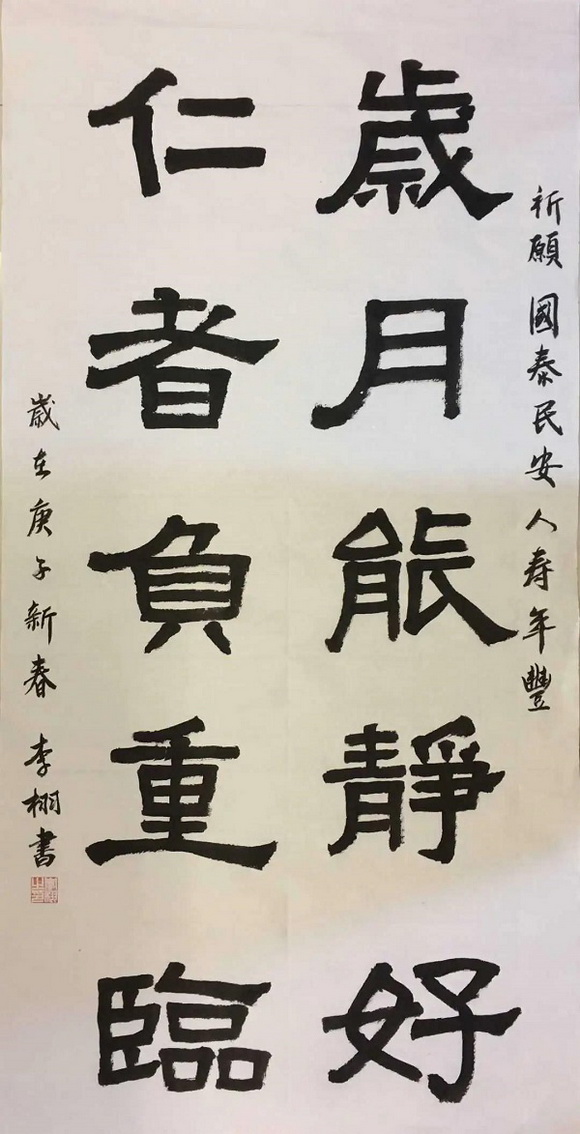 祈願 國泰民安 人寿年豐
歳月能靜好
仁者負重臨
歳在庚子新春 李栩書